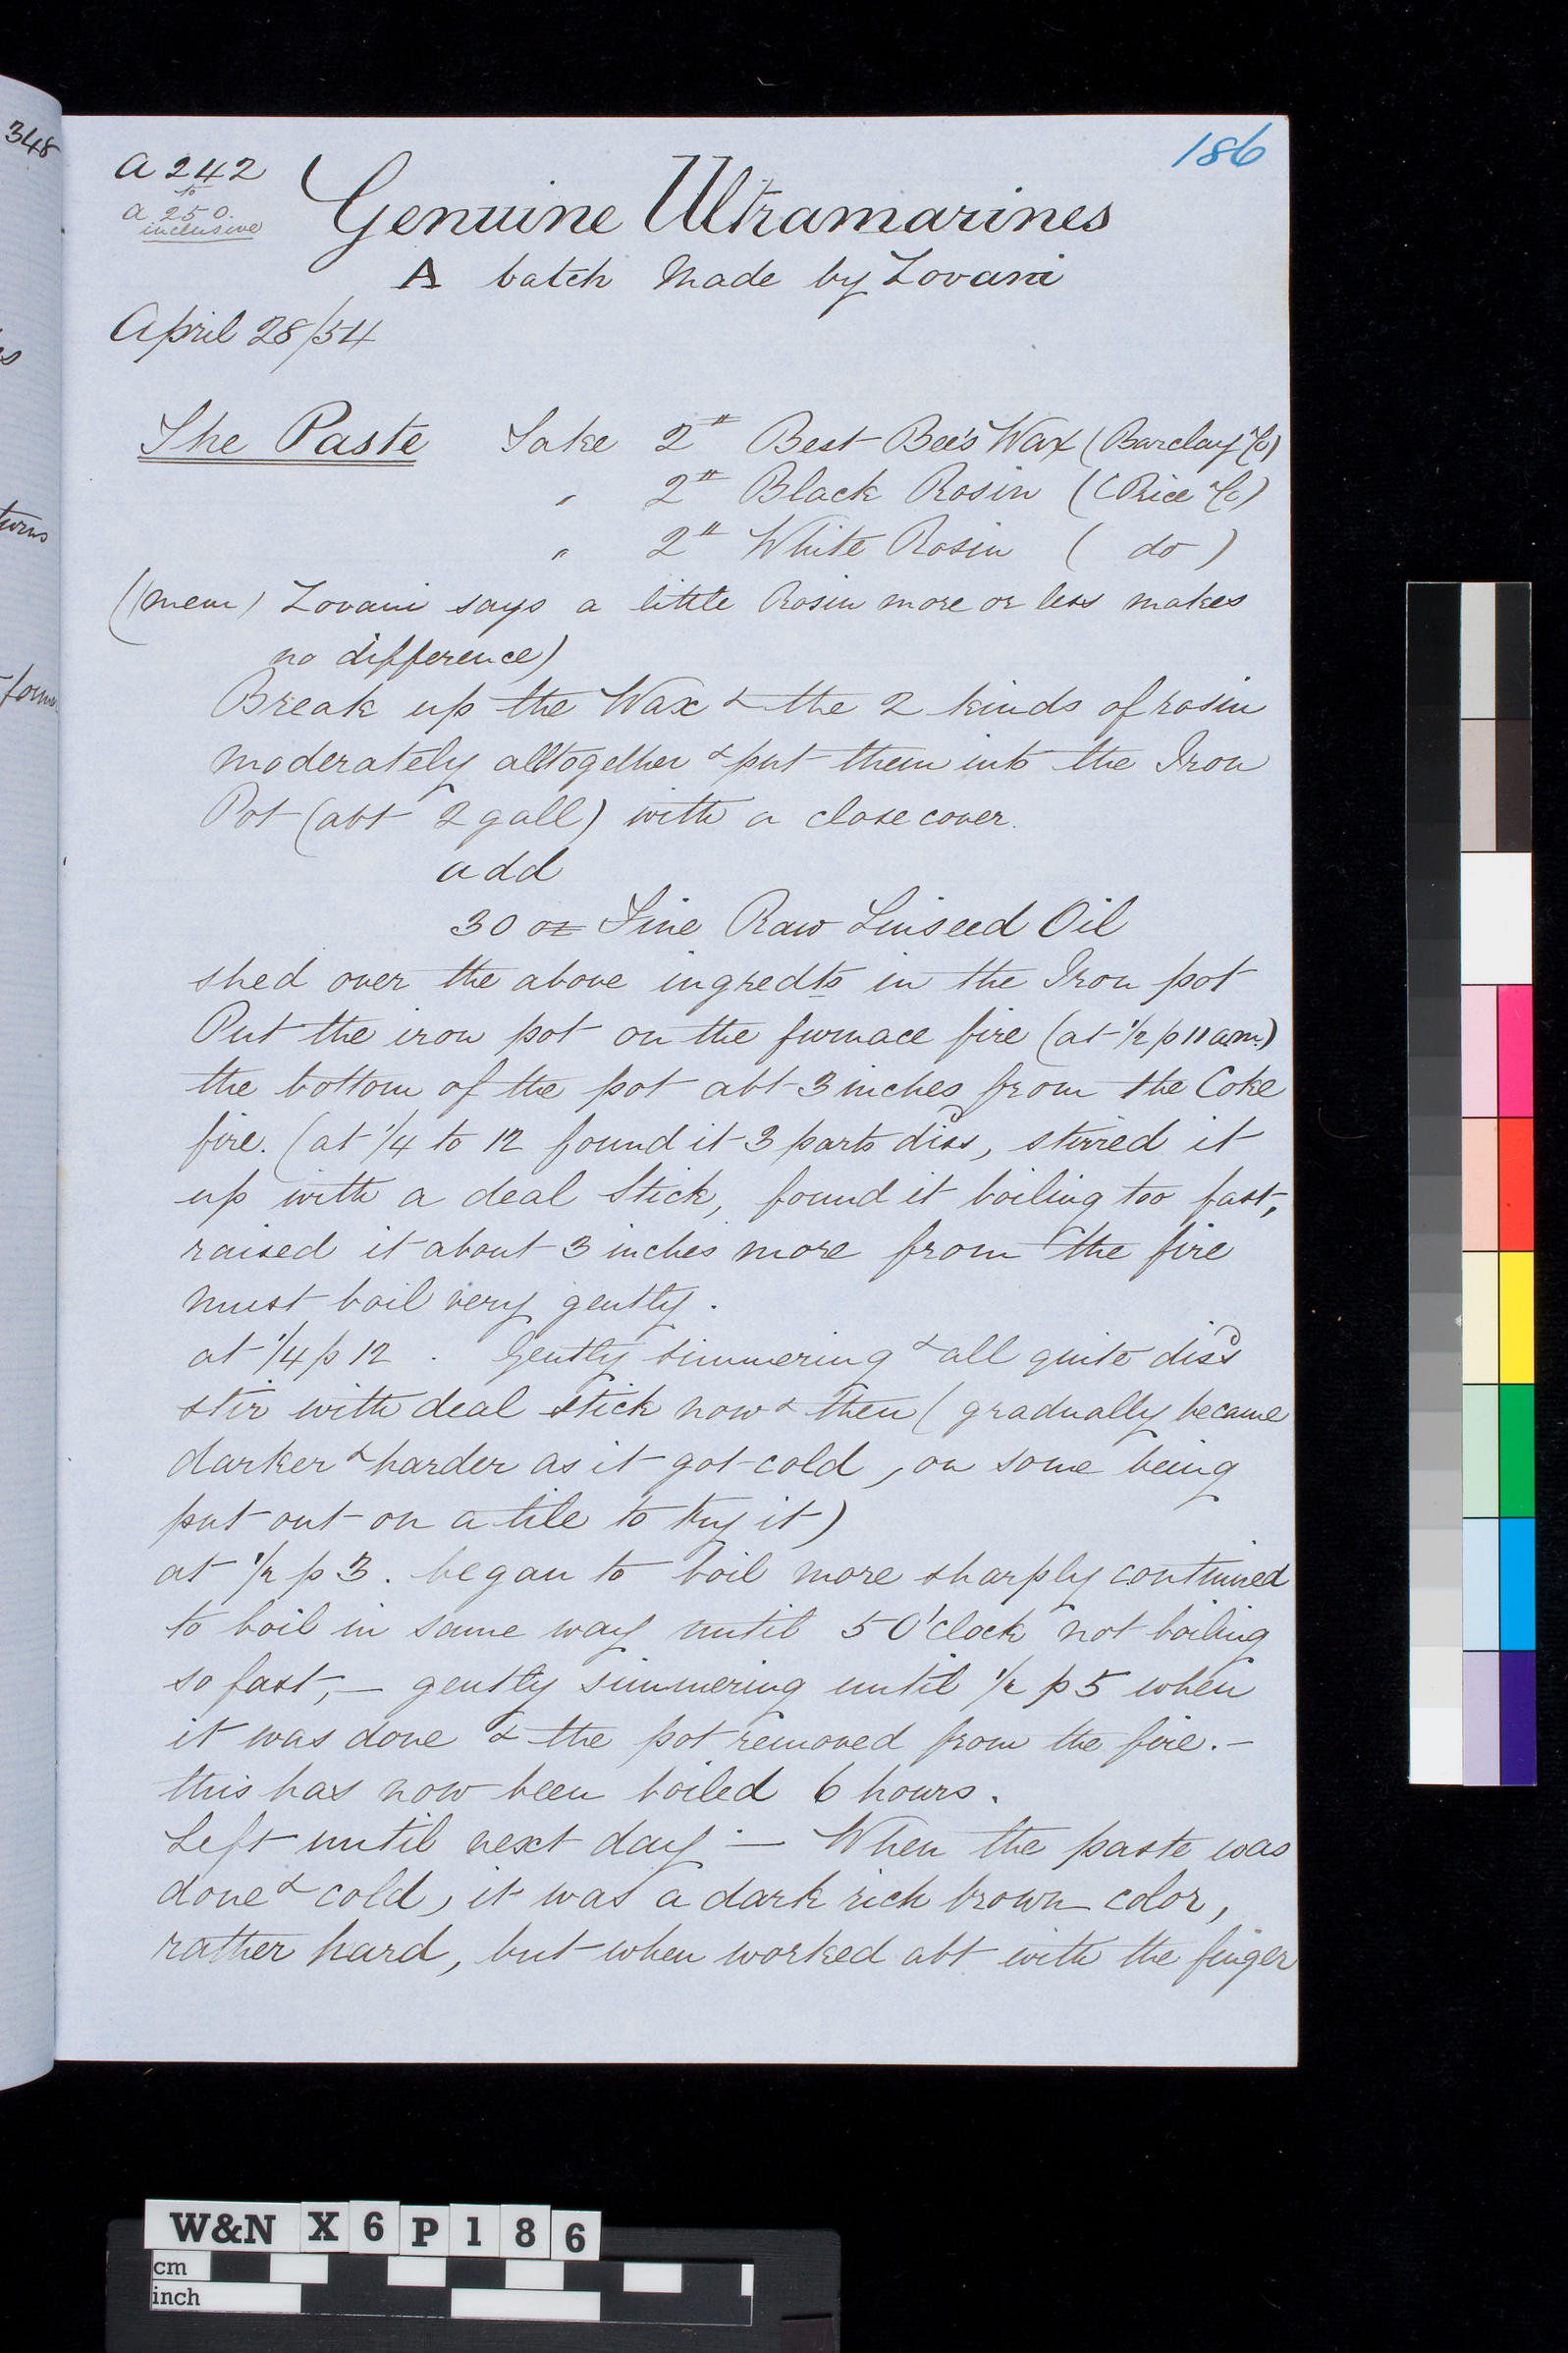 348
186
A 242
to
A 250.
inclusive
Genuine Ultramarines
A batch Made by Zovani
April 28/54
The Paste Take 2 ℔ Best Bee's Wax (Barclay & Co)
" 2 ℔ Black Rosin (Price & Co)
" 2 ℔ White Rosin ( do )
((mem) Zovani says a little Rosin more or less makes
no difference)
Break up the Wax & the 2 kinds of rosin
moderately alltogether & put them into the Iron
Pot (abt 2 gall) with a close cover.
add
30 oz Fine Raw Linseed Oil
shed over the above ingredts in the Iron pot
Put the iron pot on the furnace fire (at 1/2 p 11 am.)
the bottom of the pot abt 3 inches from the Coke
fire. (at 1/4 to 12 found it 3 parts dissd, stirred it
up with a deal Stick, found it boiling too fast,
raised it about 3 inches more from the fire
must boil very gently.
at 1/4 p 12 . Gently simmering & all quite dissd
stir with deal stick now & then (gradually became
darker & harder as it got cold, on some being
put out on a tile to try it)
at 1/2 p 3. began to boil more sharply continued
to boil in same way until 5 O'clock not boiling
so fast, — gently simmering until 1/2 p 5 when
it was done & the pot removed from the fire. —
this has now been boiled 6 hours.
Left until next day. — When the paste was
done & cold, it was a dark rich brown color,
rather hard, but when worked abt with the finger
W&N X6P186
cm
inch